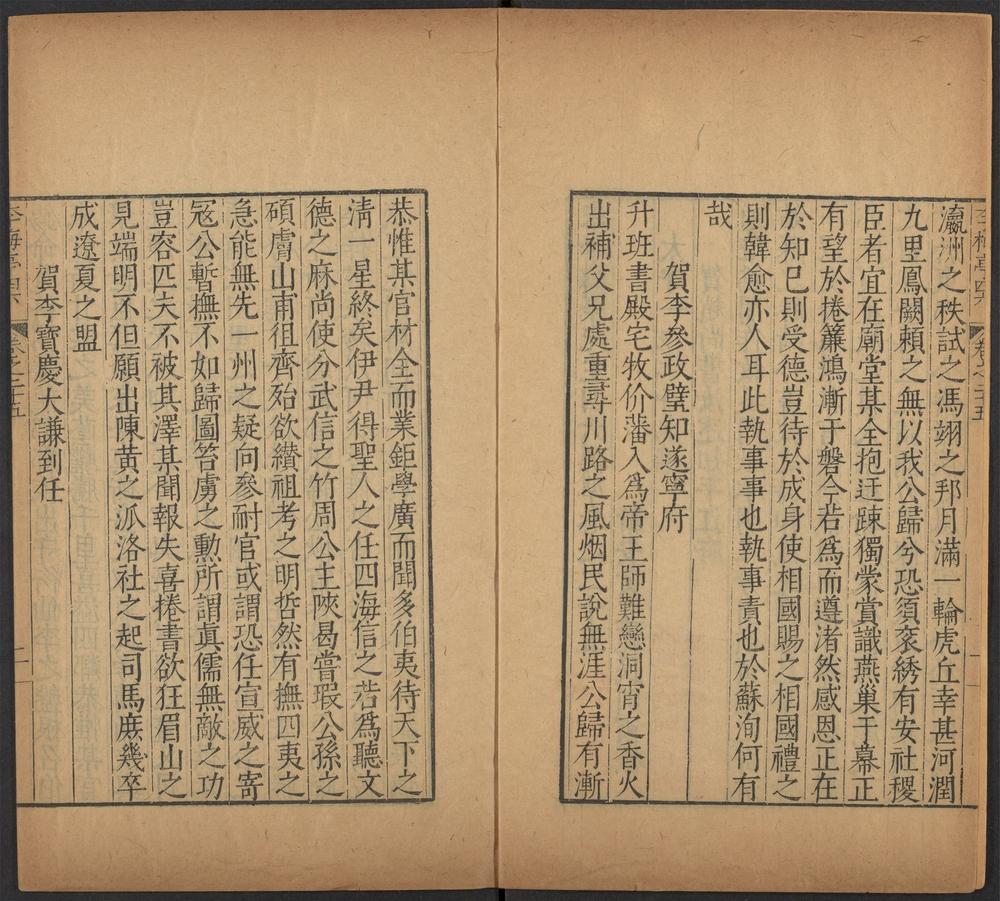 李梅亭四六 卷之二十五 一
瀛洲之秩試之馮翊之邦月滿一輪虎丘幸甚河潤
九里鳳闕頼之無以我公歸兮恐須衮綉有安社稷
臣者宜在廟堂某全抱迂踈獨蒙賞識燕巢于幕正
有望於捲簾鴻漸于磐今若爲而遵渚然感恩正在
於知已則受德豈待於成身使相國賜之相國禮之
則韓愈亦人耳此執事事也執事責也於蘇洵何有
哉
賀李參政壁知遂寧府
升班書殿宅牧价藩入爲帝王師難戀洞宵之香火
出補父兄處重尋川路之風烟民說無涯公歸有漸
恭惟某官材全而業鉅學廣而聞多伯夷待天下之
淸一星終矣伊尹得聖人之任四海信之若爲聽文
德之麻尚使分武信之竹周公主陜曷嘗瑕公孫之
碩膚山甫徂齊殆欲纉祖考之明哲然有撫四夷之
急能無先一州之疑问參耐官或謂恐任宣威之寄
冦公暫撫不如歸圖筞虜之勲所謂真儒無敵之功
豈容匹夫不被其澤某聞報失喜捲書欲狂眉山之
見端明不但願出陳黄之泒洛社之起司馬庻幾卒
成遼夏之盟
賀李寶慶大謙到任
李梅亭四六 卷之二十五 二